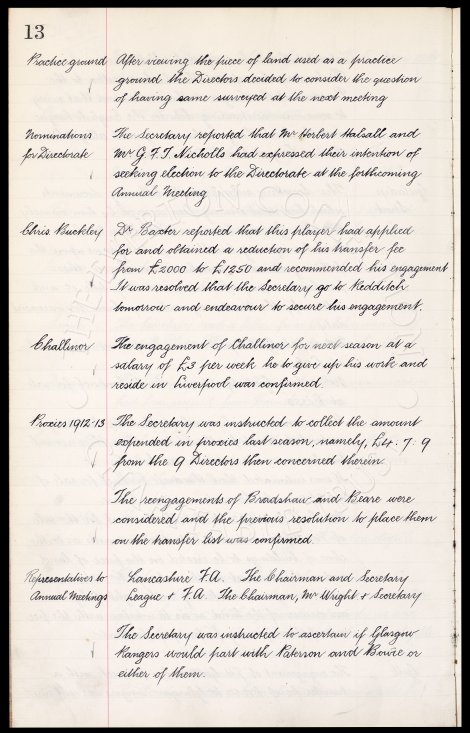 13
Practice ground After viewing the piece of land used as a practice
ground the Directors decided to consider the question
of having same surveyed at the next meeting
Nominations The Secretary reported that Mr Herbert Halsall and
for Directorate Mr G. F. T. Nicholls had expressed their intention of
seeking election to the Directorate at the forthcoming
Annual Meeting
Chris Buckley Dr Baxter reported that this player had applied
for and obtained a reduction of his transfer fee
from £2000 to £1250 and recommended his engagement
It was resolved that the Secretary go to Redditch
tomorrow and endeavour to secure his engagement.
Challinor The engagement of Challinor for next season at a
salary of £3 per week he to give up his work and
reside in Liverpool was confirmed.
Proxies 1912-13 The Secretary was instructed to collect the amount
expended in proxies last season, namely, £4. 7. 9
from the 9 Directors then concerned therein.
The reengagements of Bradshaw and Beare were
considered and the previous resolution to place them
on the transfer list was confirmed.
Representatives to Lancashire F.A. The Chairman and Secretary
Annual Meetings League & F.A. The Chairman, Mr Wright & Secretary
The Secretary was instructed to ascertain if Glasgow
Rangers would part with Paterson and Bowie or
either of them.